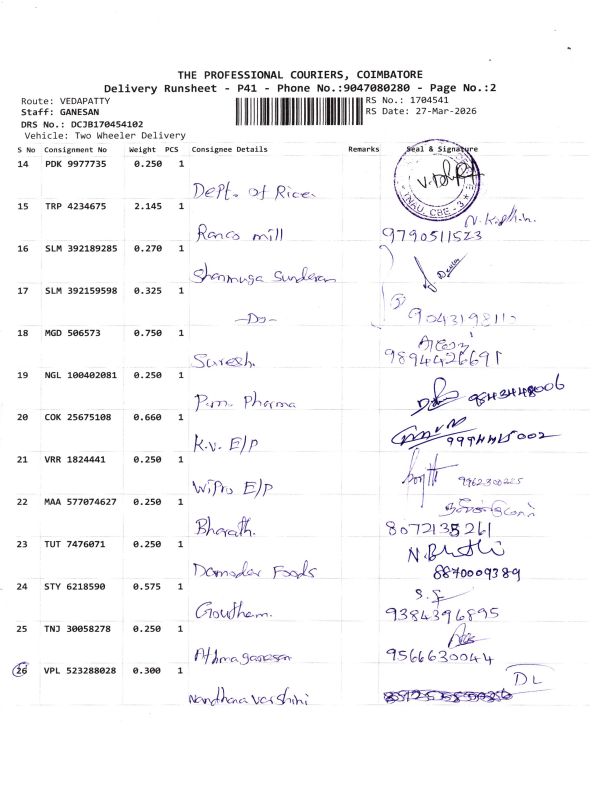 THE PROFESSIONAL COURIERS, COIMBATORE
Delivery Runsheet - P41 - Phone No.:9047080280 - Page No.:2
Route: VEDAPATTY
RS No.: 1704541
Staff: GANESAN
RS Date: 27-Mar-2026
DRS No.: DCJB170454102
Vehicle: Two Wheeler Delivery
S No Consignment No Weight PCS Consignee Details Remarks Seal & Signature
14 PDK 9977735 0.250 1
Dept. of Rice
TNAU, CBE - 3
15 TRP 4234675 2.145 1
Ranco mill 9790511523
16 SLM 392189285 0.270 1
Shanmuga Sundaram
17 SLM 392159598 0.325 1
-Do-
18 MGD 506573 0.750 1
Suresh. 9894426691
19 NGL 100402081 0.250 1
Pum Pharma 9843448006
20 COK 25675108 0.660 1
K.V. E/P 9994415002
21 VRR 1824441 0.250 1
Wipro E/P
22 MAA 577074627 0.250 1
Bharath. 8072135261
23 TUT 7476071 0.250 1
Damodar Foods 8870009389
24 STY 6218590 0.575 1
Gowthem. 9384396895
25 TNJ 30058278 0.250 1
Athmaganesan 9566630044
26 VPL 523288028 0.300 1
DL
Nandhana varshini